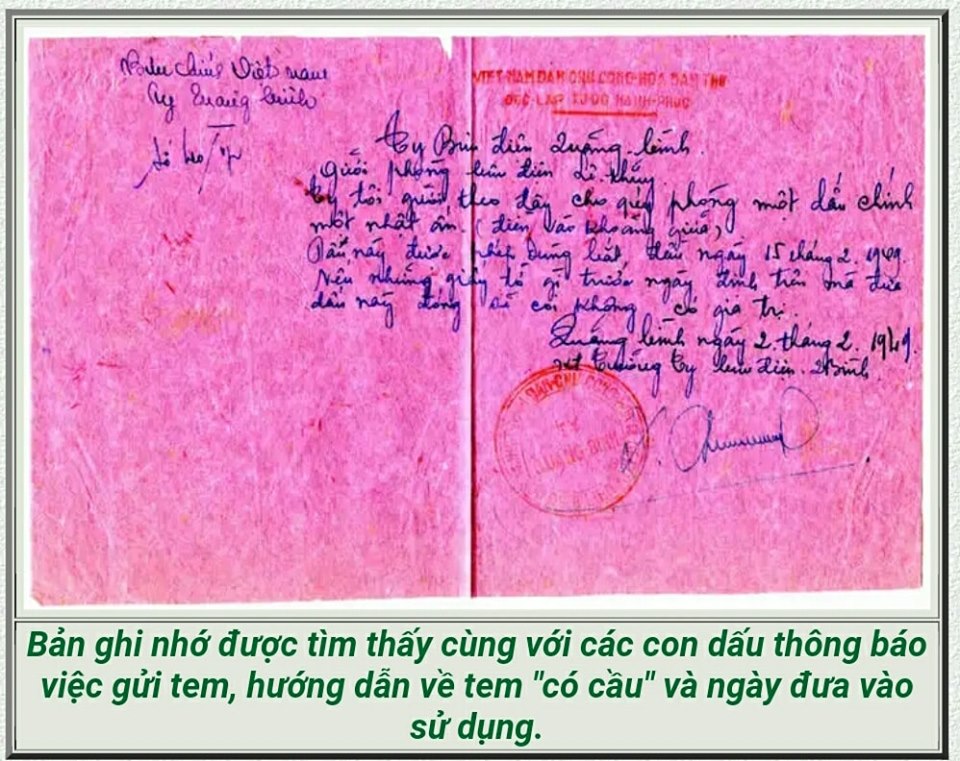 Bưu chính Việt nam
Ty Quảng bình
Số
VIỆT-NAM DÂN CHỦ CỘNG-HÒA DÂN THỨ
ĐỘC-LẬP TỰ-DO HẠNH-PHÚC
Ty Bưu điện Quảng-bình.
Gửi phòng bưu điện
Ty tôi gửi theo đây cho quý phòng một dấu chính
một nhật ấn. (điền vào khoảng giữa)
Dấu này được phép dùng bắt đầu ngày 15 tháng 2. 1949.
Nếu những giấy tờ gì trước ngày định trên mà đưa
dấu này đóng sẽ coi không có giá trị.
Quảng bình ngày 2 tháng 2. 1949.
Trưởng Ty bưu điện. QBình
TY
QUẢNG BÌNH
Bản ghi nhớ được tìm thấy cùng với các con dấu thông báo
việc gửi tem, hướng dẫn về tem "có cầu" và ngày đưa vào
sử dụng.